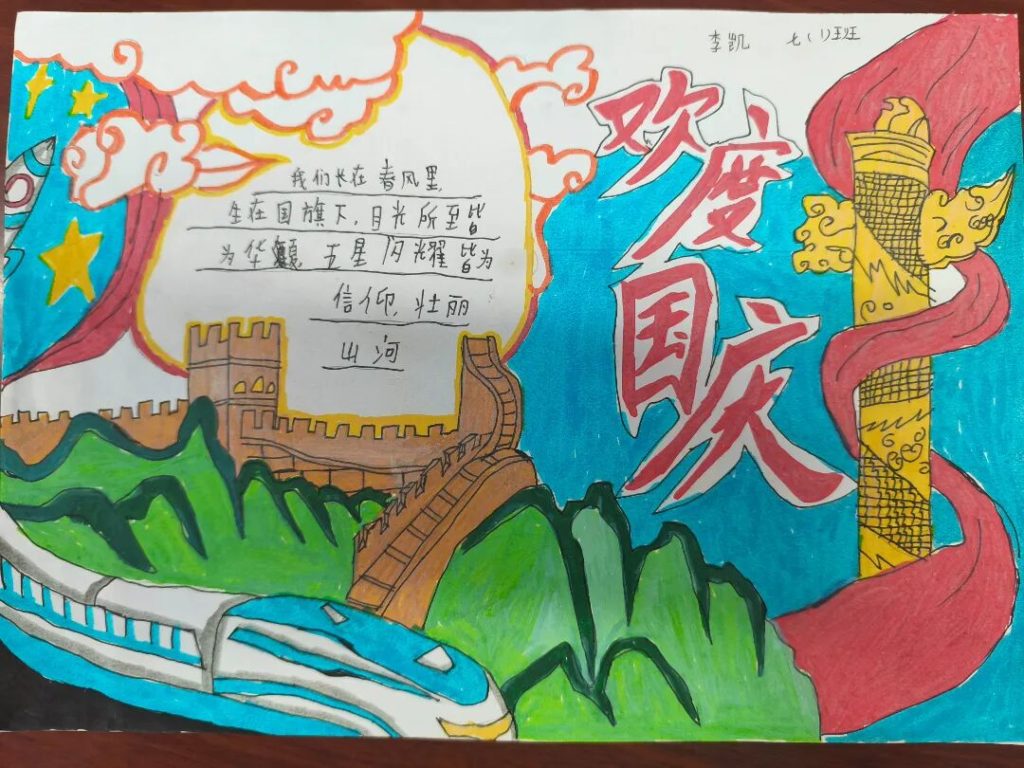 李凯 七(1)班
欢度
国庆
我们长在春风里,
生在国旗下,目光所至皆
为华 五星闪耀皆为
信仰,壮丽
山河